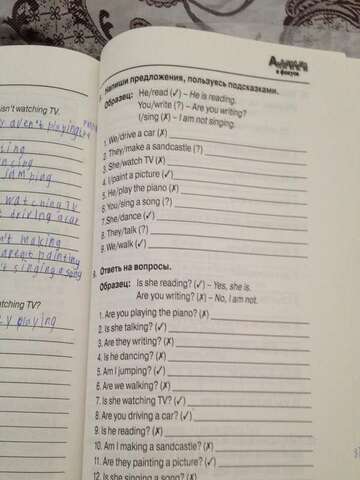 isn't watching TV.
aren't playing
watching TV
driving a car
making
painting
singing a song
watching TV?
playing
в фокусе
Напиши предложения, пользуясь подсказками.
Образец: He/read (✓) – He is reading.
You/write (?) – Are you writing?
I/sing (✗) – I am not singing.
1. We/drive a car (✗)
2. They/make a sandcastle (?)
3. She/watch TV (✗)
4. I/paint a picture (✓)
5. He/play the piano (✗)
6. You/sing a song (?)
7. She/dance (✓)
8. They/talk (?)
9. We/walk (✓)
Ответь на вопросы.
Образец: Is she reading? (✓) – Yes, she is.
Are you writing? (✗) – No, I am not.
1. Are you playing the piano? (✗)
2. Is she talking? (✓)
3. Are they writing? (✗)
4. Is he dancing? (✗)
5. Am I jumping? (✓)
6. Are we walking? (✗)
7. Is she watching TV? (✓)
8. Are you driving a car? (✓)
9. Is he reading? (✗)
10. Am I making a sandcastle? (✗)
11. Are they painting a picture? (✓)
12. Is she singing a song? (✗)